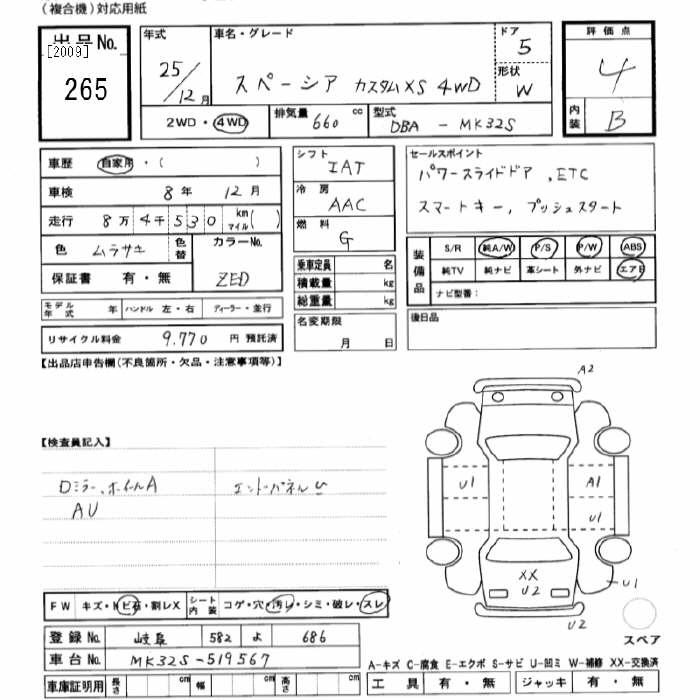 (複合機)対応用紙
出品No.
[2009]
265
年式
25/12月
車名・グレード
スペーシア カスタムXS 4WD
ドア
5
形状
W
2WD・4WD
排気量
660 cc
型式
DBA - MK32S
評価点
4
内装
B
車歴 自家用・( )
車検 8年 12月
走行 8万4千530 km マイル( )
色 ムラサキ 色替
カラーNo.
ZED
保証書 有・無
モデル年式 年 ハンドル 左・右 ディーラー・並行
リサイクル料金 9,770 円 預託済
シフト
IAT
冷房
AAC
燃料
G
乗車定員 名
積載量 kg
総重量 kg
名変期限
月 日
セールスポイント
パワースライドドア、ETC
スマートキー, プッシュスタート
装備品
S/R 純A/W P/S P/W ABS
純TV 純ナビ 革シート 外ナビ エアB
ナビ型番:
後日品
【出品店申告欄(不良箇所・欠品・注意事項等)】
【検査員記入】
Dミラー、ホイールA
AU
エンドパネルU
A2
U1
A1
U1
XX
U2
U1
U2
スペア
FW キズ・ヒビ石・割レX シート内装 コゲ・穴・汚レ・シミ・破レ・スレ
登録No. 岐阜 582 よ 686
車台No. MK32S-519567
車庫証明用 長さ cm 幅 cm 高さ cm
A-キズ C-腐食 E-エクボ S-サビ U-凹ミ W-補修 XX-交換済
工具 有・無 ジャッキ 有・無